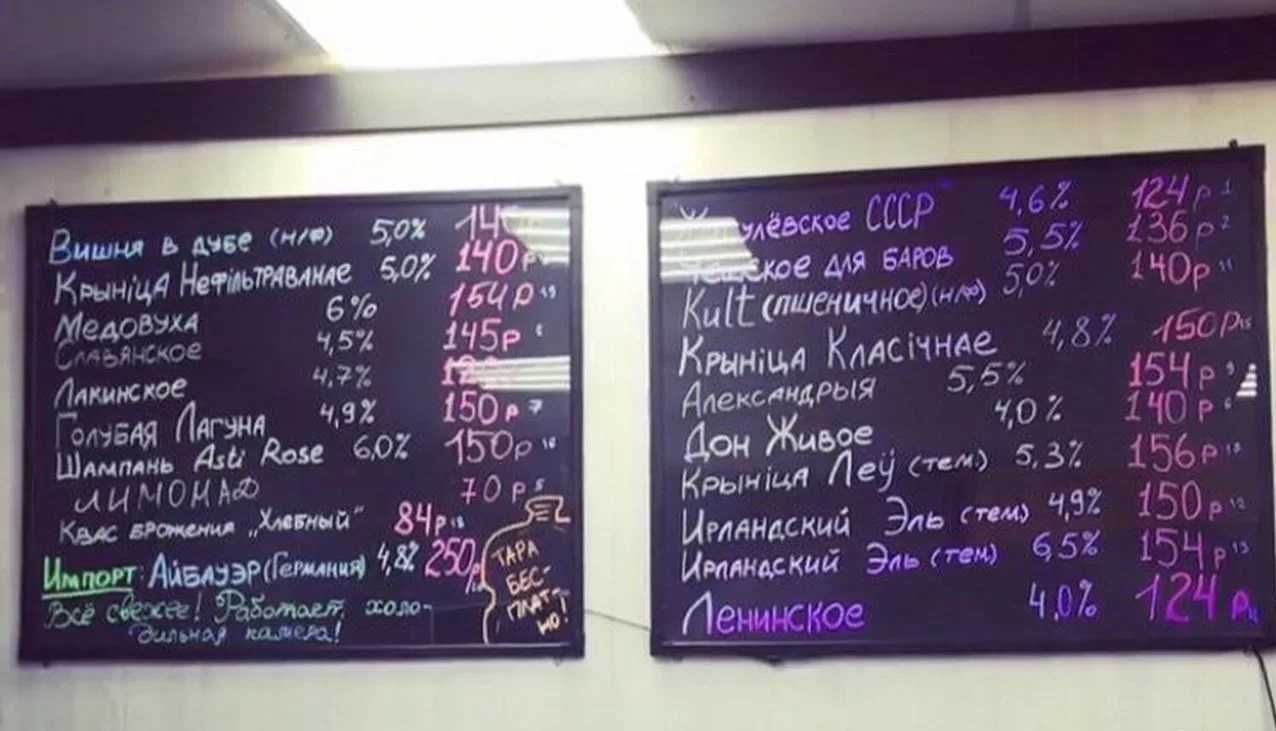 Вишня в дубе (н/ф) 5,0%
Крыніца Нефільтраванае 5,0% 140р
Медовуха 6% 154р 19
Славянское 4,5% 145р
Лакинское 4,7%
Голубая Лагуна 4,9% 150р 7
Шампань Asti Rose 6,0% 150р
ЛИМОНАД 70р 5
Квас брожения „Хлебный" 84р
Импорт: Айбауэр (Германия) 4,8% 250р
Всё свежее! Работает холо-
дильная камера!
ТАРА
БЕС-
ПЛАТ-
НО!
СССР 4,6% 124р 1
для баров 5,5% 136р 2
Kult (пшеничное) (н/ф) 5,0% 140р 11
Крыніца Класічнае 4,8% 150р 15
Александрыя 5,5% 154р
Дон Живое 4,0% 140р
Крыніца Леў (тем.) 5,3% 156р
Ирландский Эль (тем) 4,9% 150р 12
Ирландский Эль (тем) 6,5% 154р 13
Ленинское 4,0% 124р